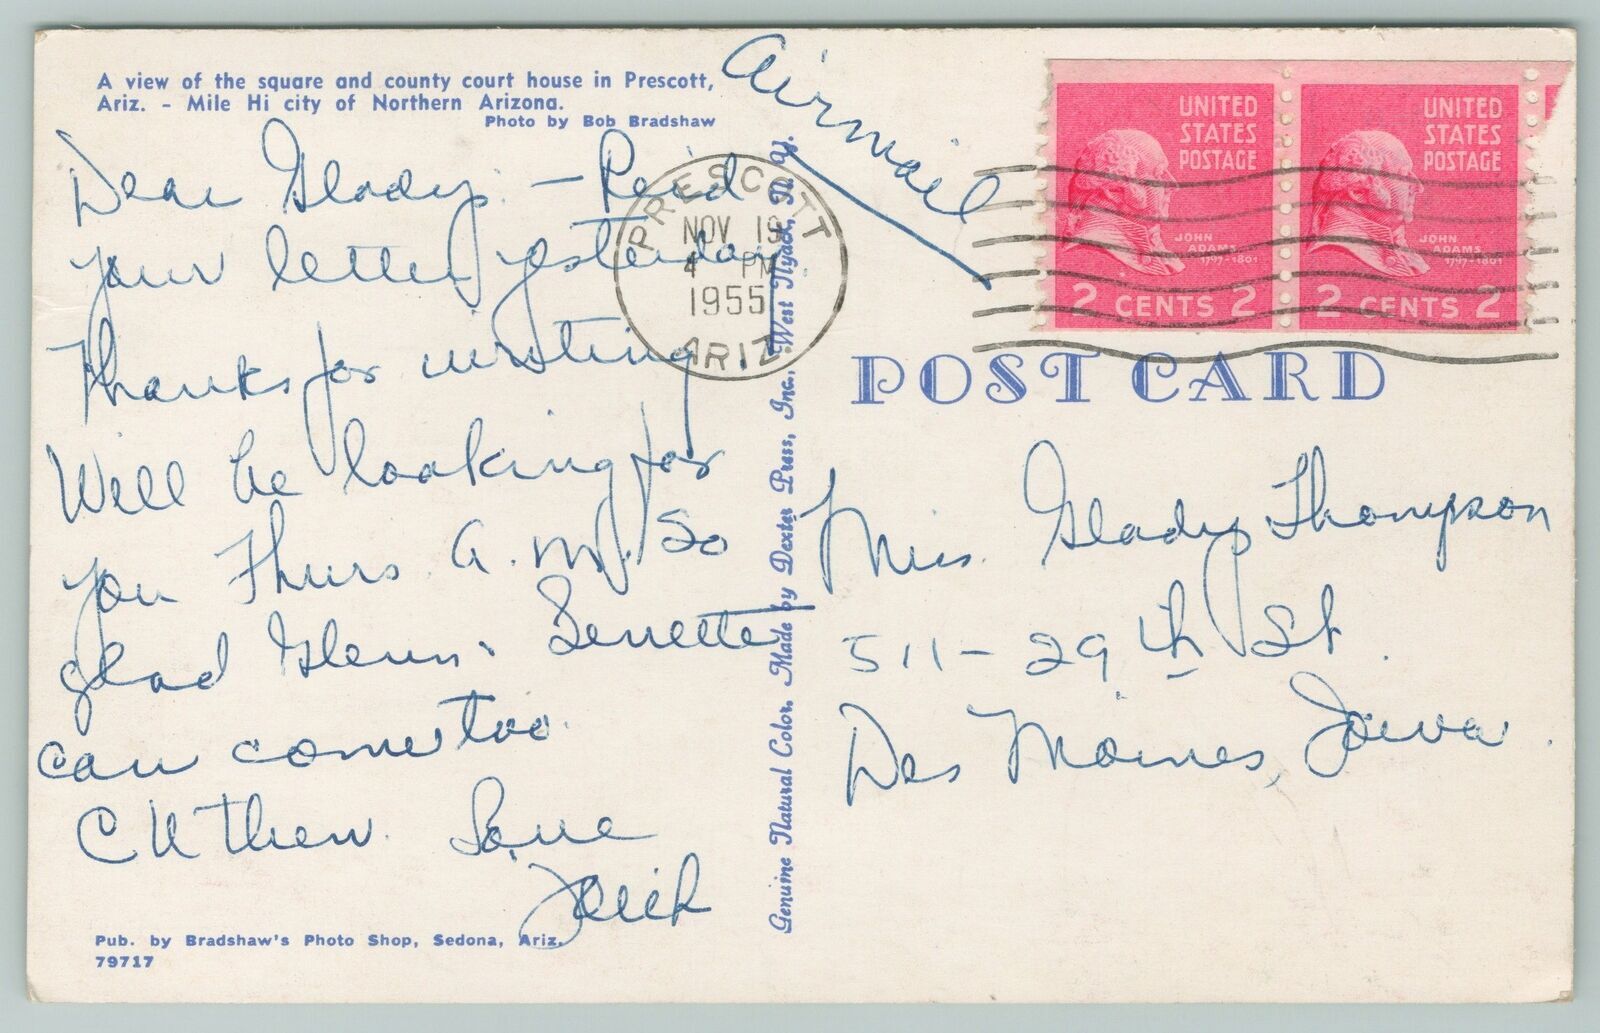 A view of the square and county court house in Prescott,
Ariz. - Mile Hi city of Northern Arizona.
Photo by Bob Bradshaw
Dear Gladys: - Recd
your letter yesterday.
Thanks for writing
Will be looking for
you Thurs. a.m. So
glad Glenn &
can come too.
C U then. Love
Pub. by Bradshaw's Photo Shop, Sedona, Ariz.
79717
Genuine Natural Color. Made by Dexter Press, Inc., West Nyack, N. Y.
Airmail
PRESCOTT
NOV 19
4 PM
1955
ARIZ.
UNITED
STATES
POSTAGE
JOHN
ADAMS
1797-1801
2 CENTS 2
UNITED
STATES
POSTAGE
JOHN
ADAMS
1797-1801
2 CENTS 2
POST CARD
Miss Gladys Thompson
511-29th St.
Des Moines, Iowa.